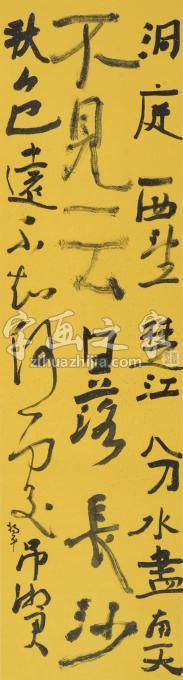 洞庭西望楚江分水盡南天
不見雲日落長沙
秋色遠不知何處吊湘君
字画之家
zihuazhijia.com